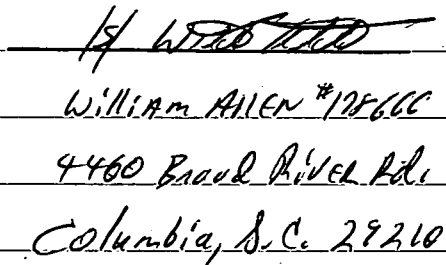 /s/
William Allen #178666
4460 Broad River Rd.
Columbia, S.C. 29210